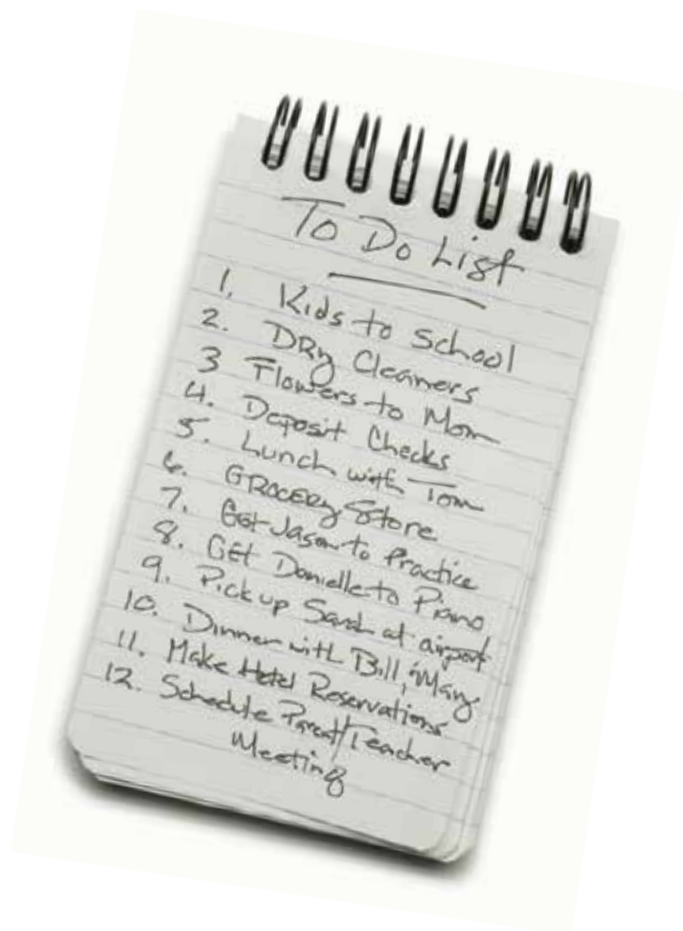 To Do List
1. Kids to School
2. DRy Cleaners
3 Flowers to Mom
4. Deposit Checks
5. Lunch with Tom
6. GROCERY Store
7. Get Jason to Practice
8. GEt Danielle to Piano
9. Pick up Sarah at airport
10. Dinner with Bill, Mary
11. Make Hotel Reservations
12. Schedule Parent/Teacher
Meeting